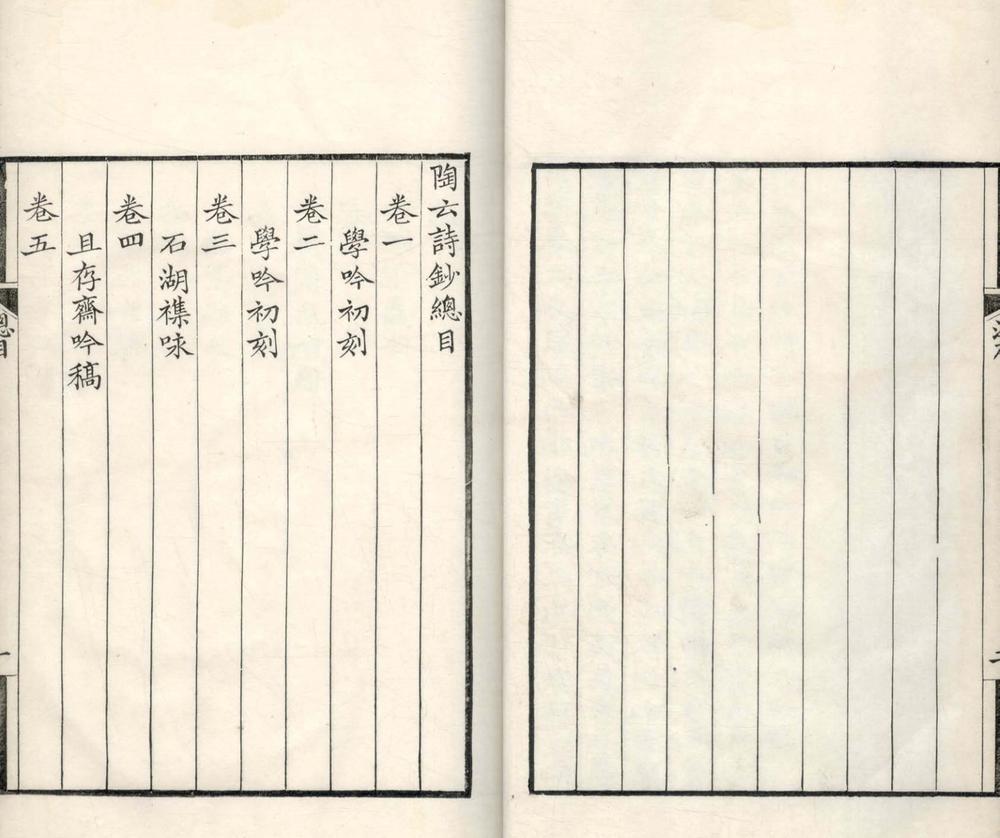 陶云詩鈔總目
卷一
學吟初刻
卷二
學吟初刻
卷三
石湖襍咏
卷四
且存齋吟稿
卷五
總目
一